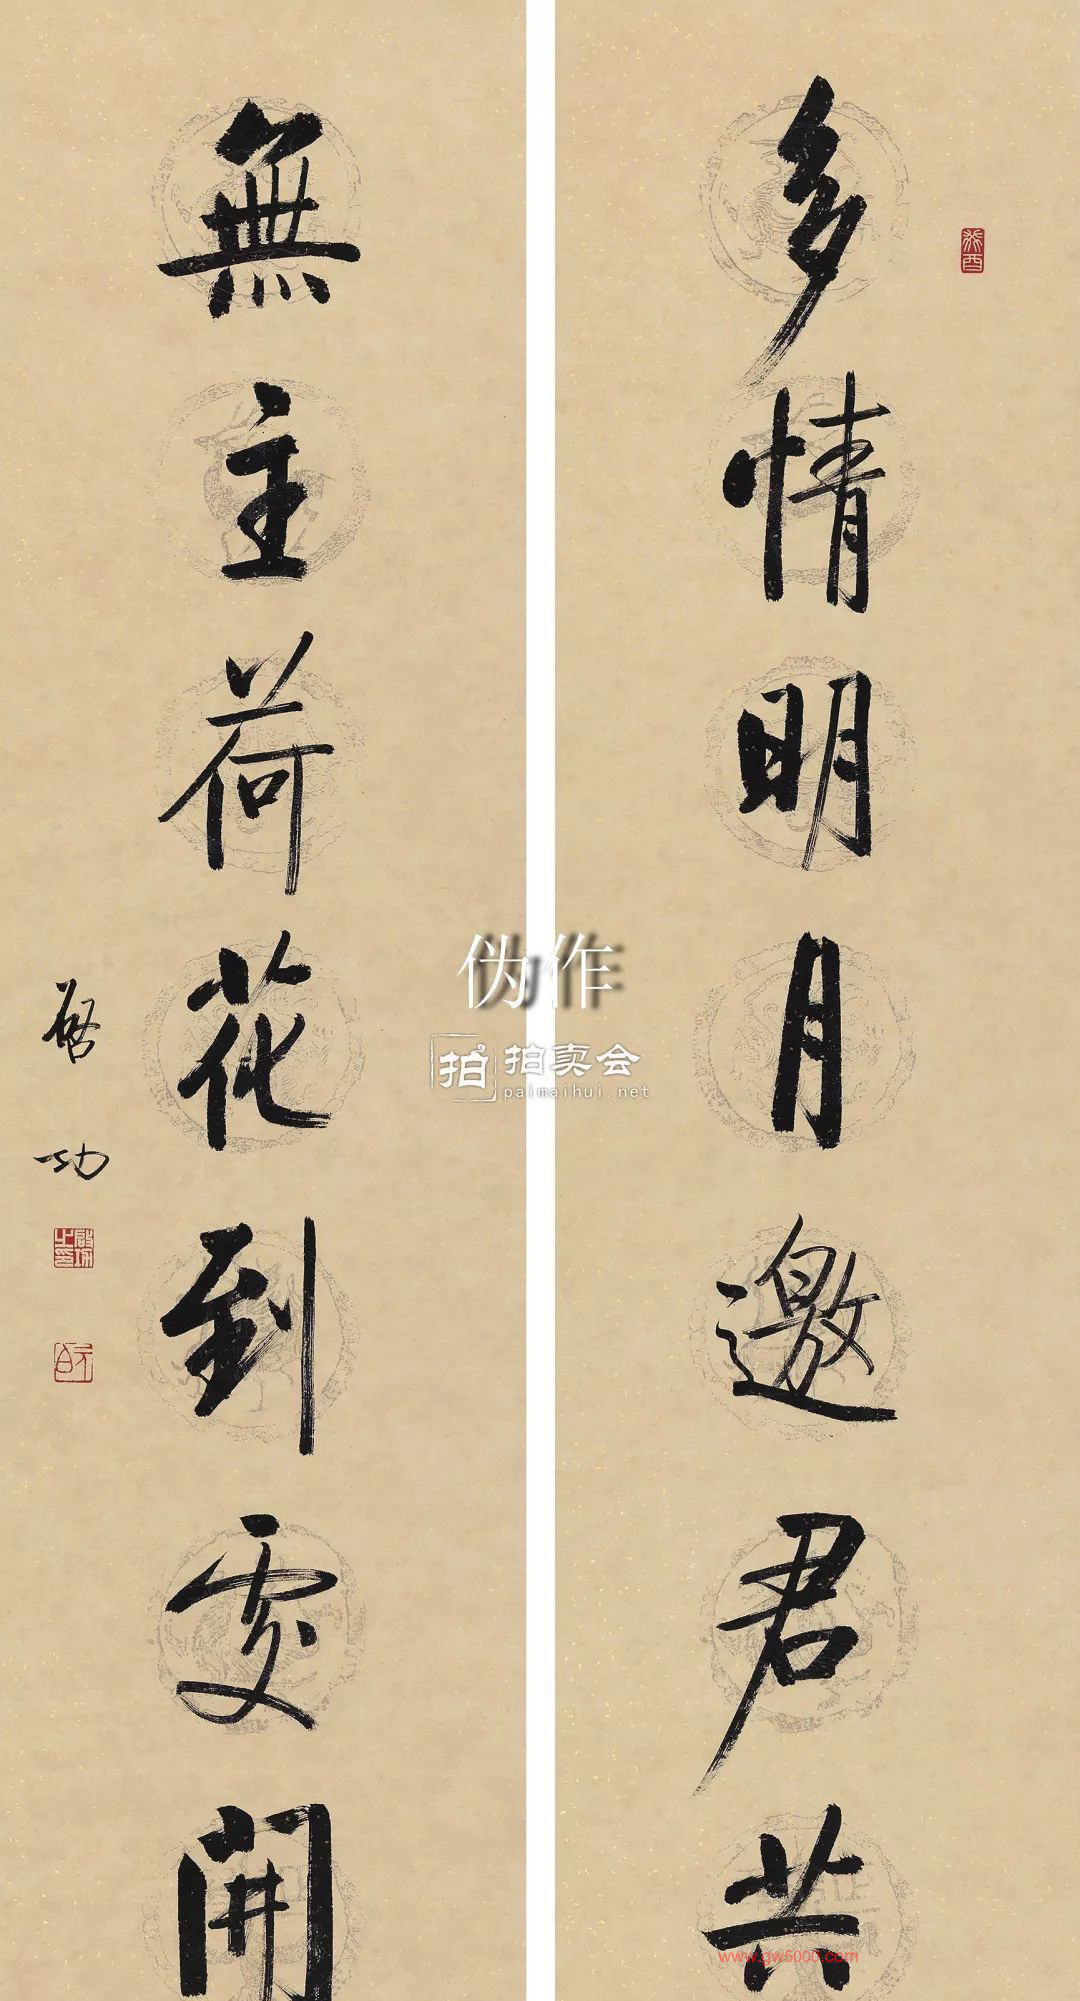 多情明月邀君共
癸酉
無主荷花到處開
启功
啟功之印
元白
伪作
拍 拍卖会
paimaihui.net
www.gw5000.com